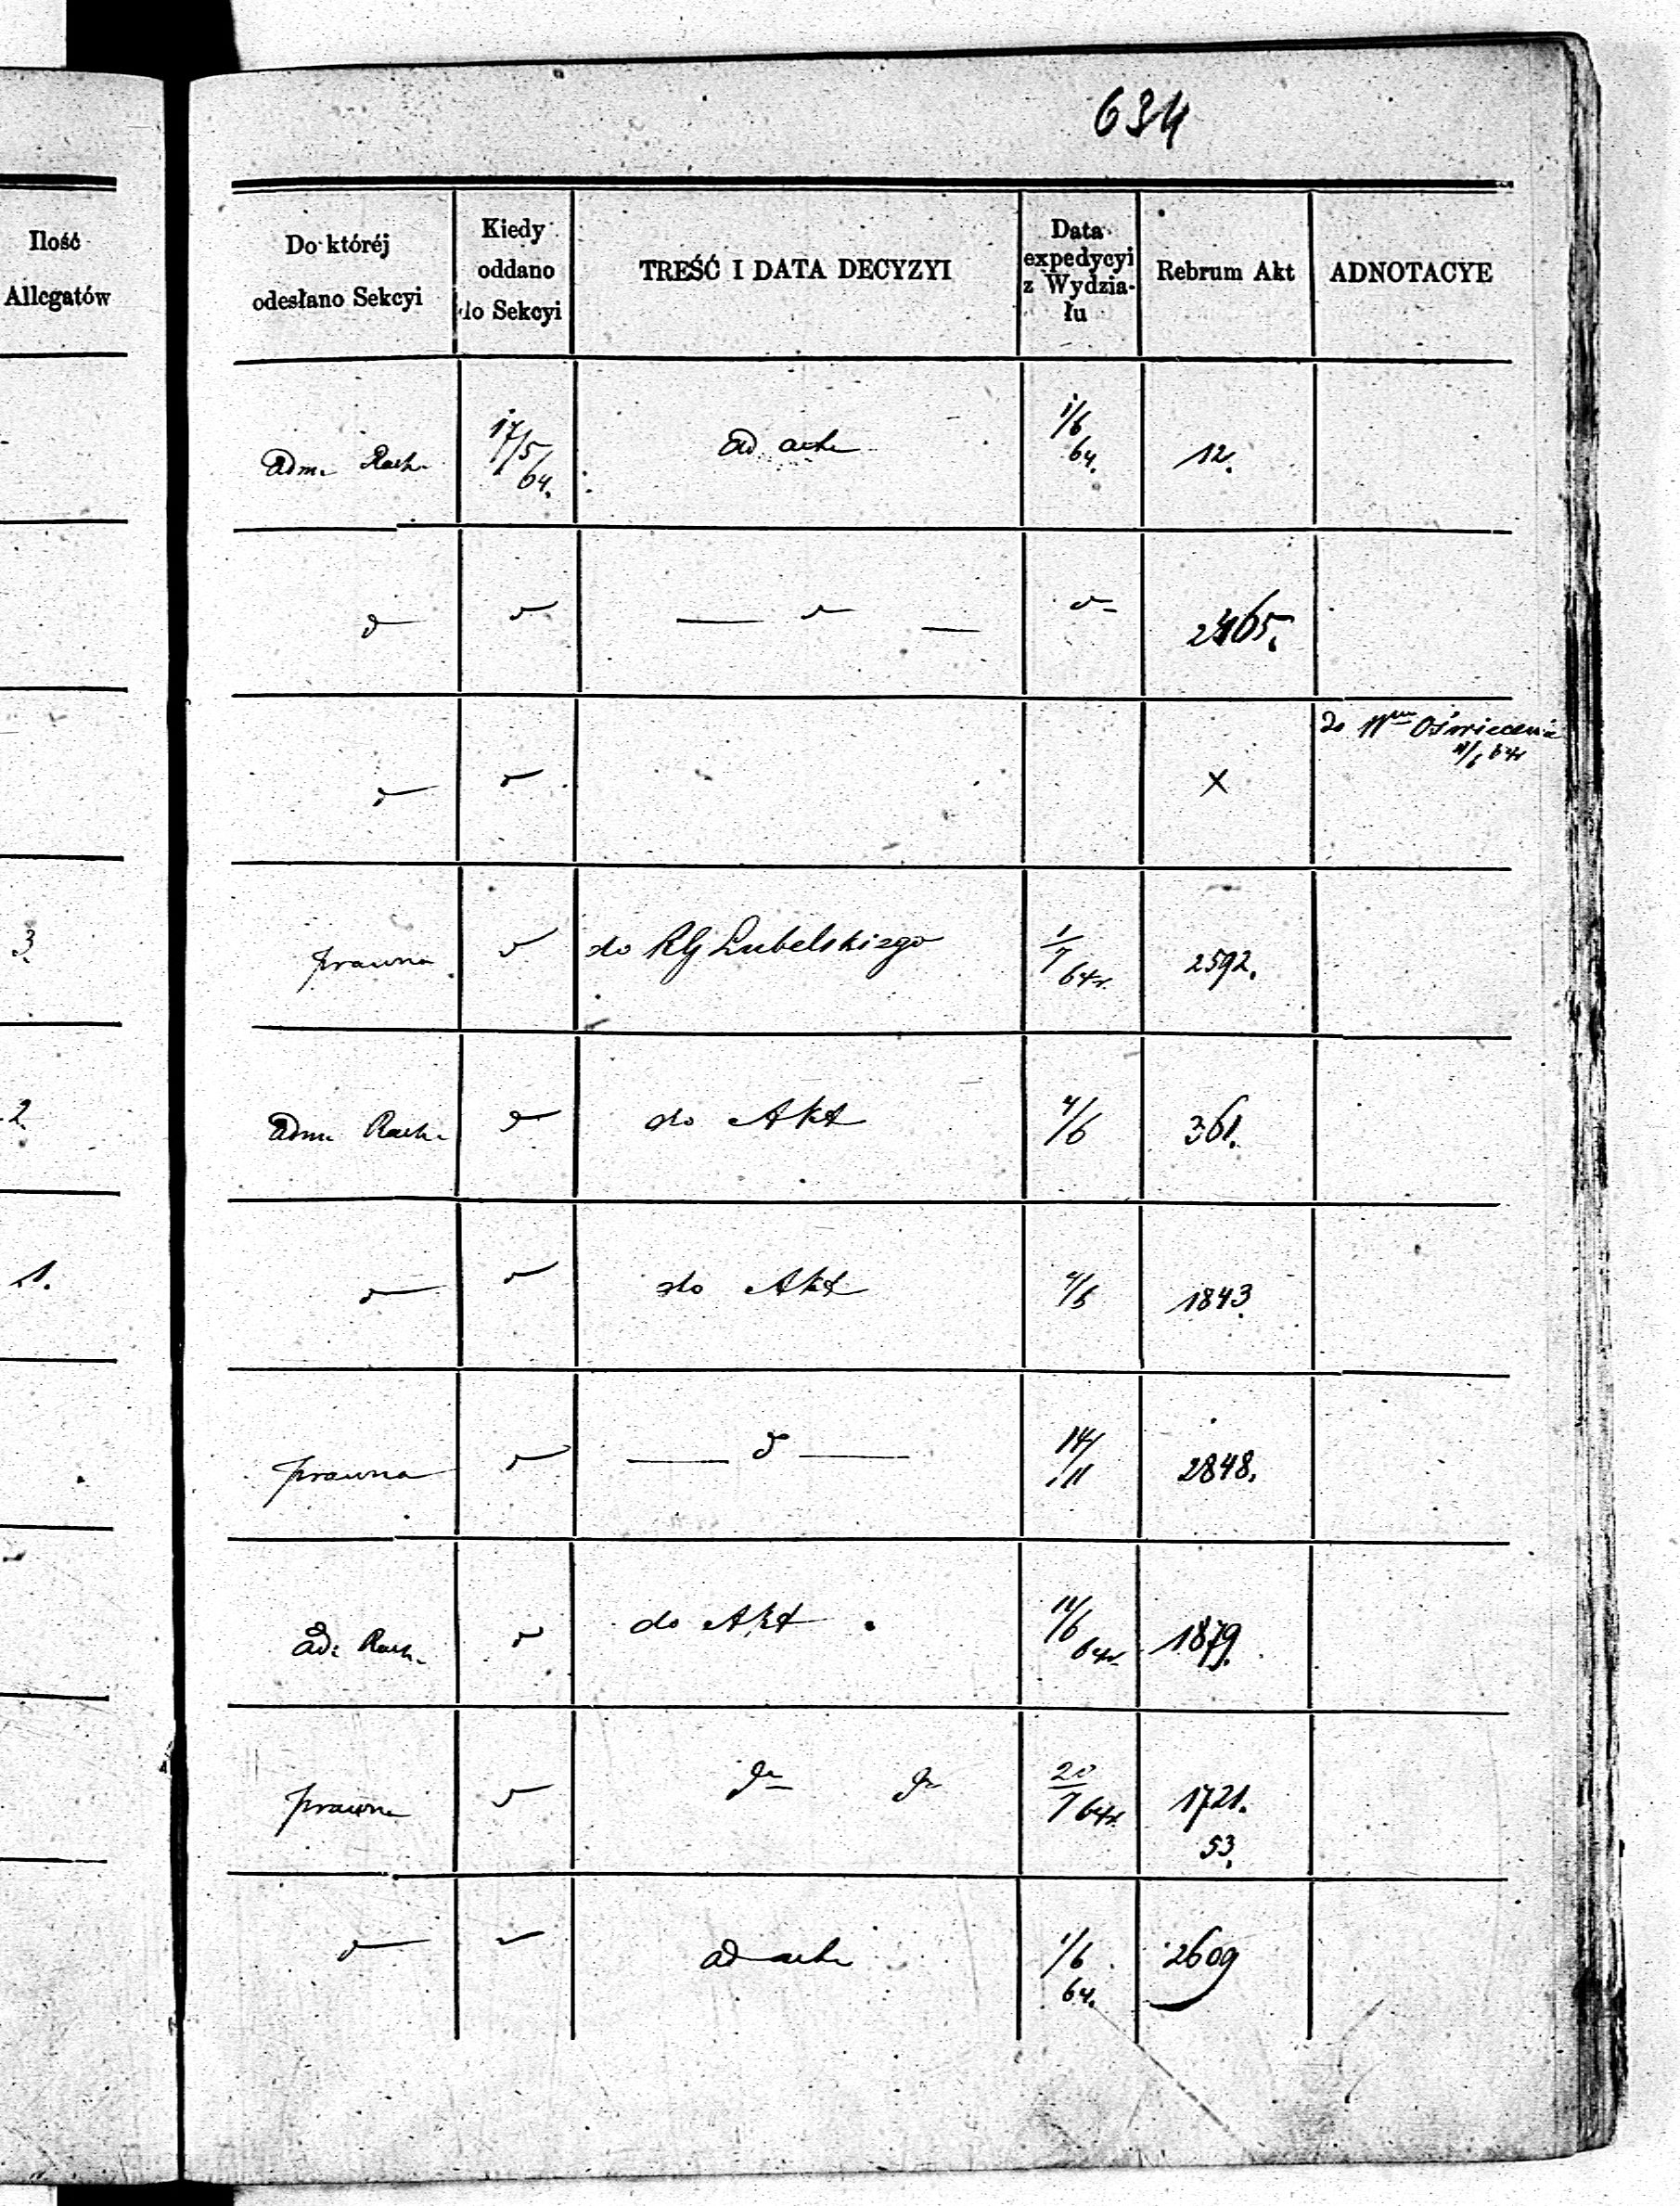 634
Ilość
Allegatów
Do któréj
odesłano Sekcyi
Kiedy
oddano
do Sekcyi
TREŚĆ I DATA DECYZYI
Data
expedycyi
z Wydzia-
łu
Rebrum Akt
ADNOTACYE
Adm. Rach. 17/5 64. ad acta 1/6 64. 12.
d d — d — d 2465.
d d X do Włu Oświecenia
11/6 64r
3. prawna d do RG Lubelskiego 1/7 64r. 2592.
2. Adm. Rach. d do Akt 4/6 361.
1. d d do Akt 4/6 1843
prawna d — d — 14/11 2848.
Ad: Rach. d do Akt 11/6 64r 1879.
prawna d do do 20/7 64r. 1721.
53.
d d ad acta 1/6 64. 2609